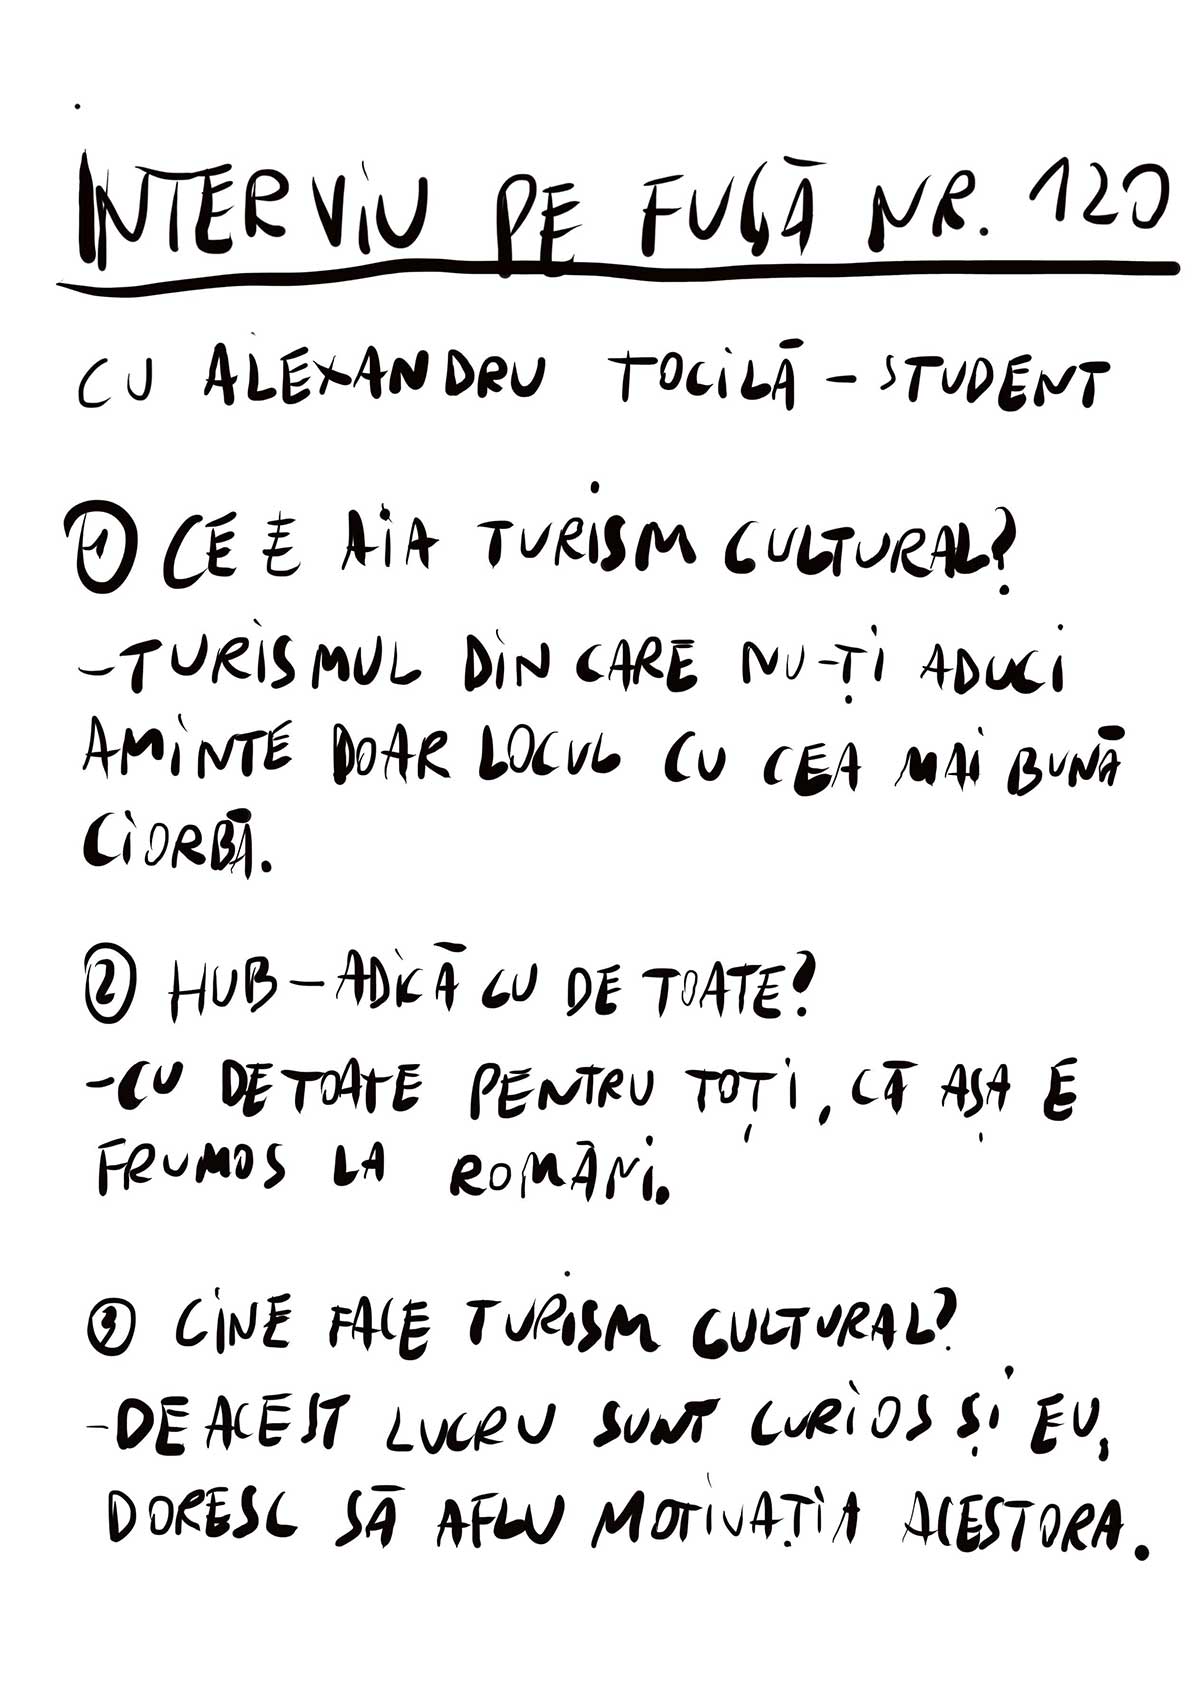 INTERVIU PE FUGĂ NR. 120
CU ALEXANDRU TOCILĂ - STUDENT
1 CE E AIA TURISM CULTURAL?
- TURISMUL DIN CARE NU-ȚI ADUCI
AMINTE DOAR LOCUL CU CEA MAI BUNĂ
CIORBĂ.
2 HUB - ADICĂ CU DE TOATE?
- CU DE TOATE PENTRU TOȚI, CĂ AȘA E
FRUMOS LA ROMÂNI.
3 CINE FACE TURISM CULTURAL?
- DE ACEST LUCRU SUNT CURIOS ȘI EU,
DORESC SĂ AFLU MOTIVAȚIA ACESTORA.